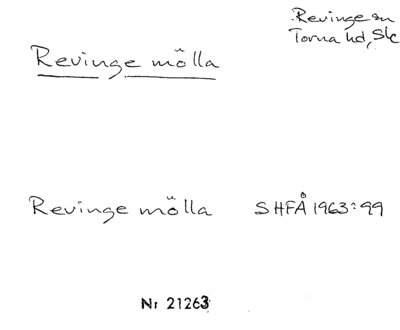 Revinge sn
Torna hd, Sk
Revinge mölla
Revinge mölla SHFÅ 1963:99
Nr 21263